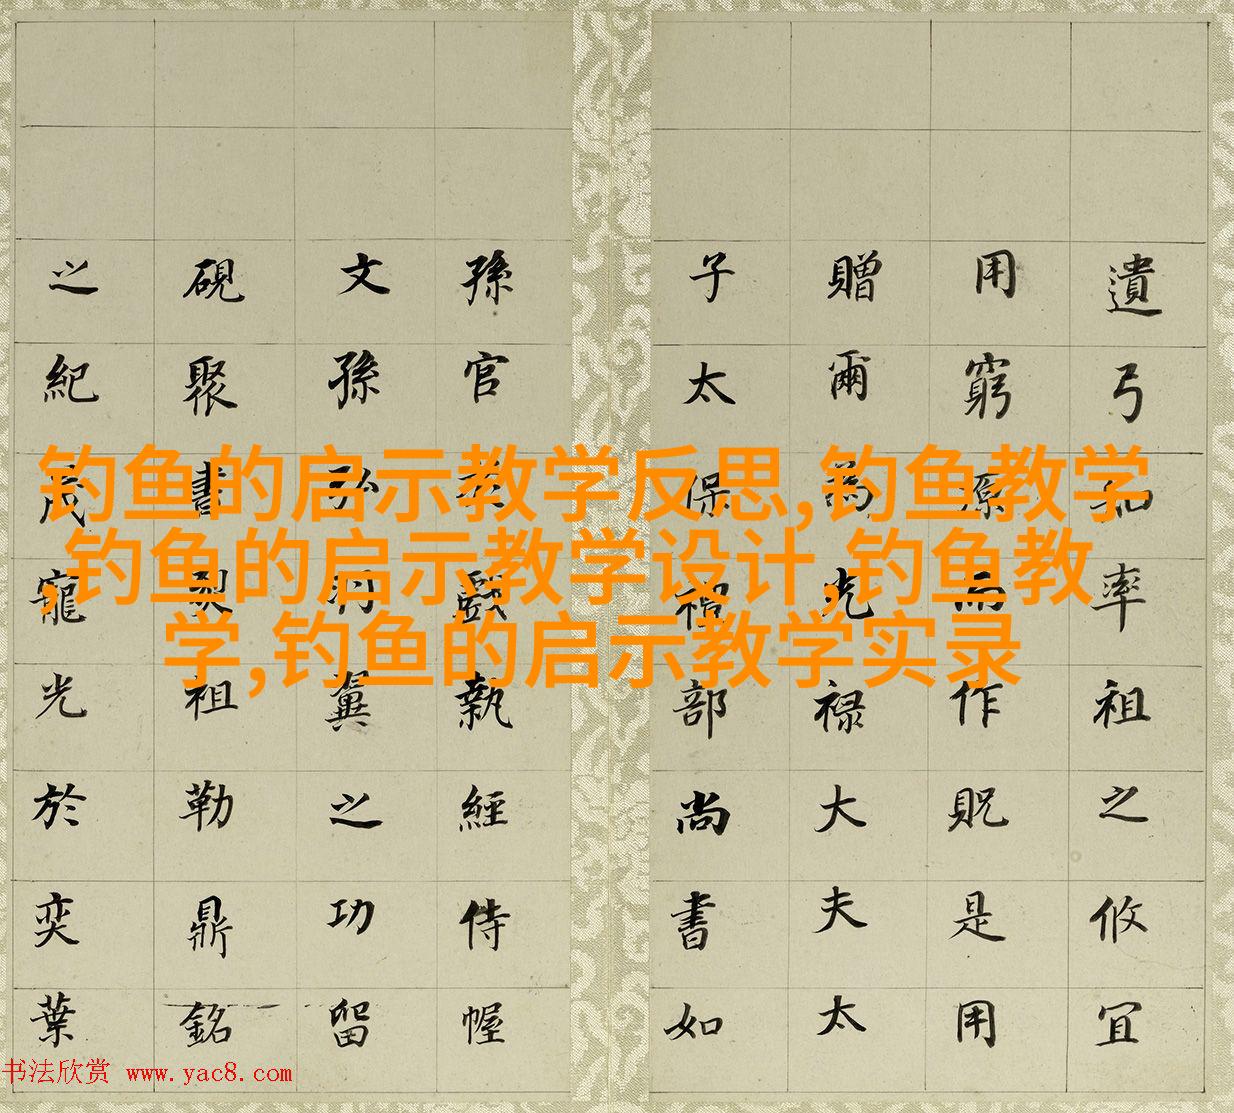 遺弓率祖之攸宜
用窮而作貺是用
贈爾為光禄大夫太
子太保禮部尚書如
孫官執經侍幄
文孫弘翼之功留
硯聚書祖勒鼎銘
之紀寵光於奕葉
钓鱼的启示教学反思,钓鱼教学
,钓鱼的启示教学设计,钓鱼教
学,钓鱼的启示教学实录
书法欣赏 www.yac8.com